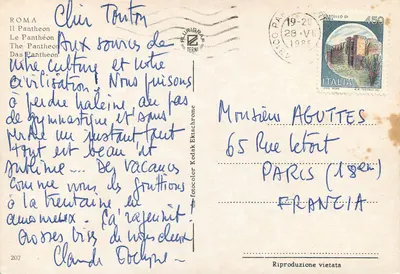 ROMA
Il Pantheon
Le Panthéon
The Pantheon
Das Pantheon
Cher Tonton
Aux sources de
notre culture et notre
civilisation! Nous puisons
à perdre haleine, au pas
de gymnastique et sans
perdre un instant tant
tout est beau et
sublime... Des vacances
comme nous les goûtions
à la trentaine en
amoureux. Ça rajeunit!
Grosses bises de nous deux
Claude
207
fotocolor Kodak Ektachrome
19-20
1985
450
ITALIA
Monsieur AGUTTES
65 Rue Letort
PARIS (18em)
FRANCIA
Riproduzione vietata